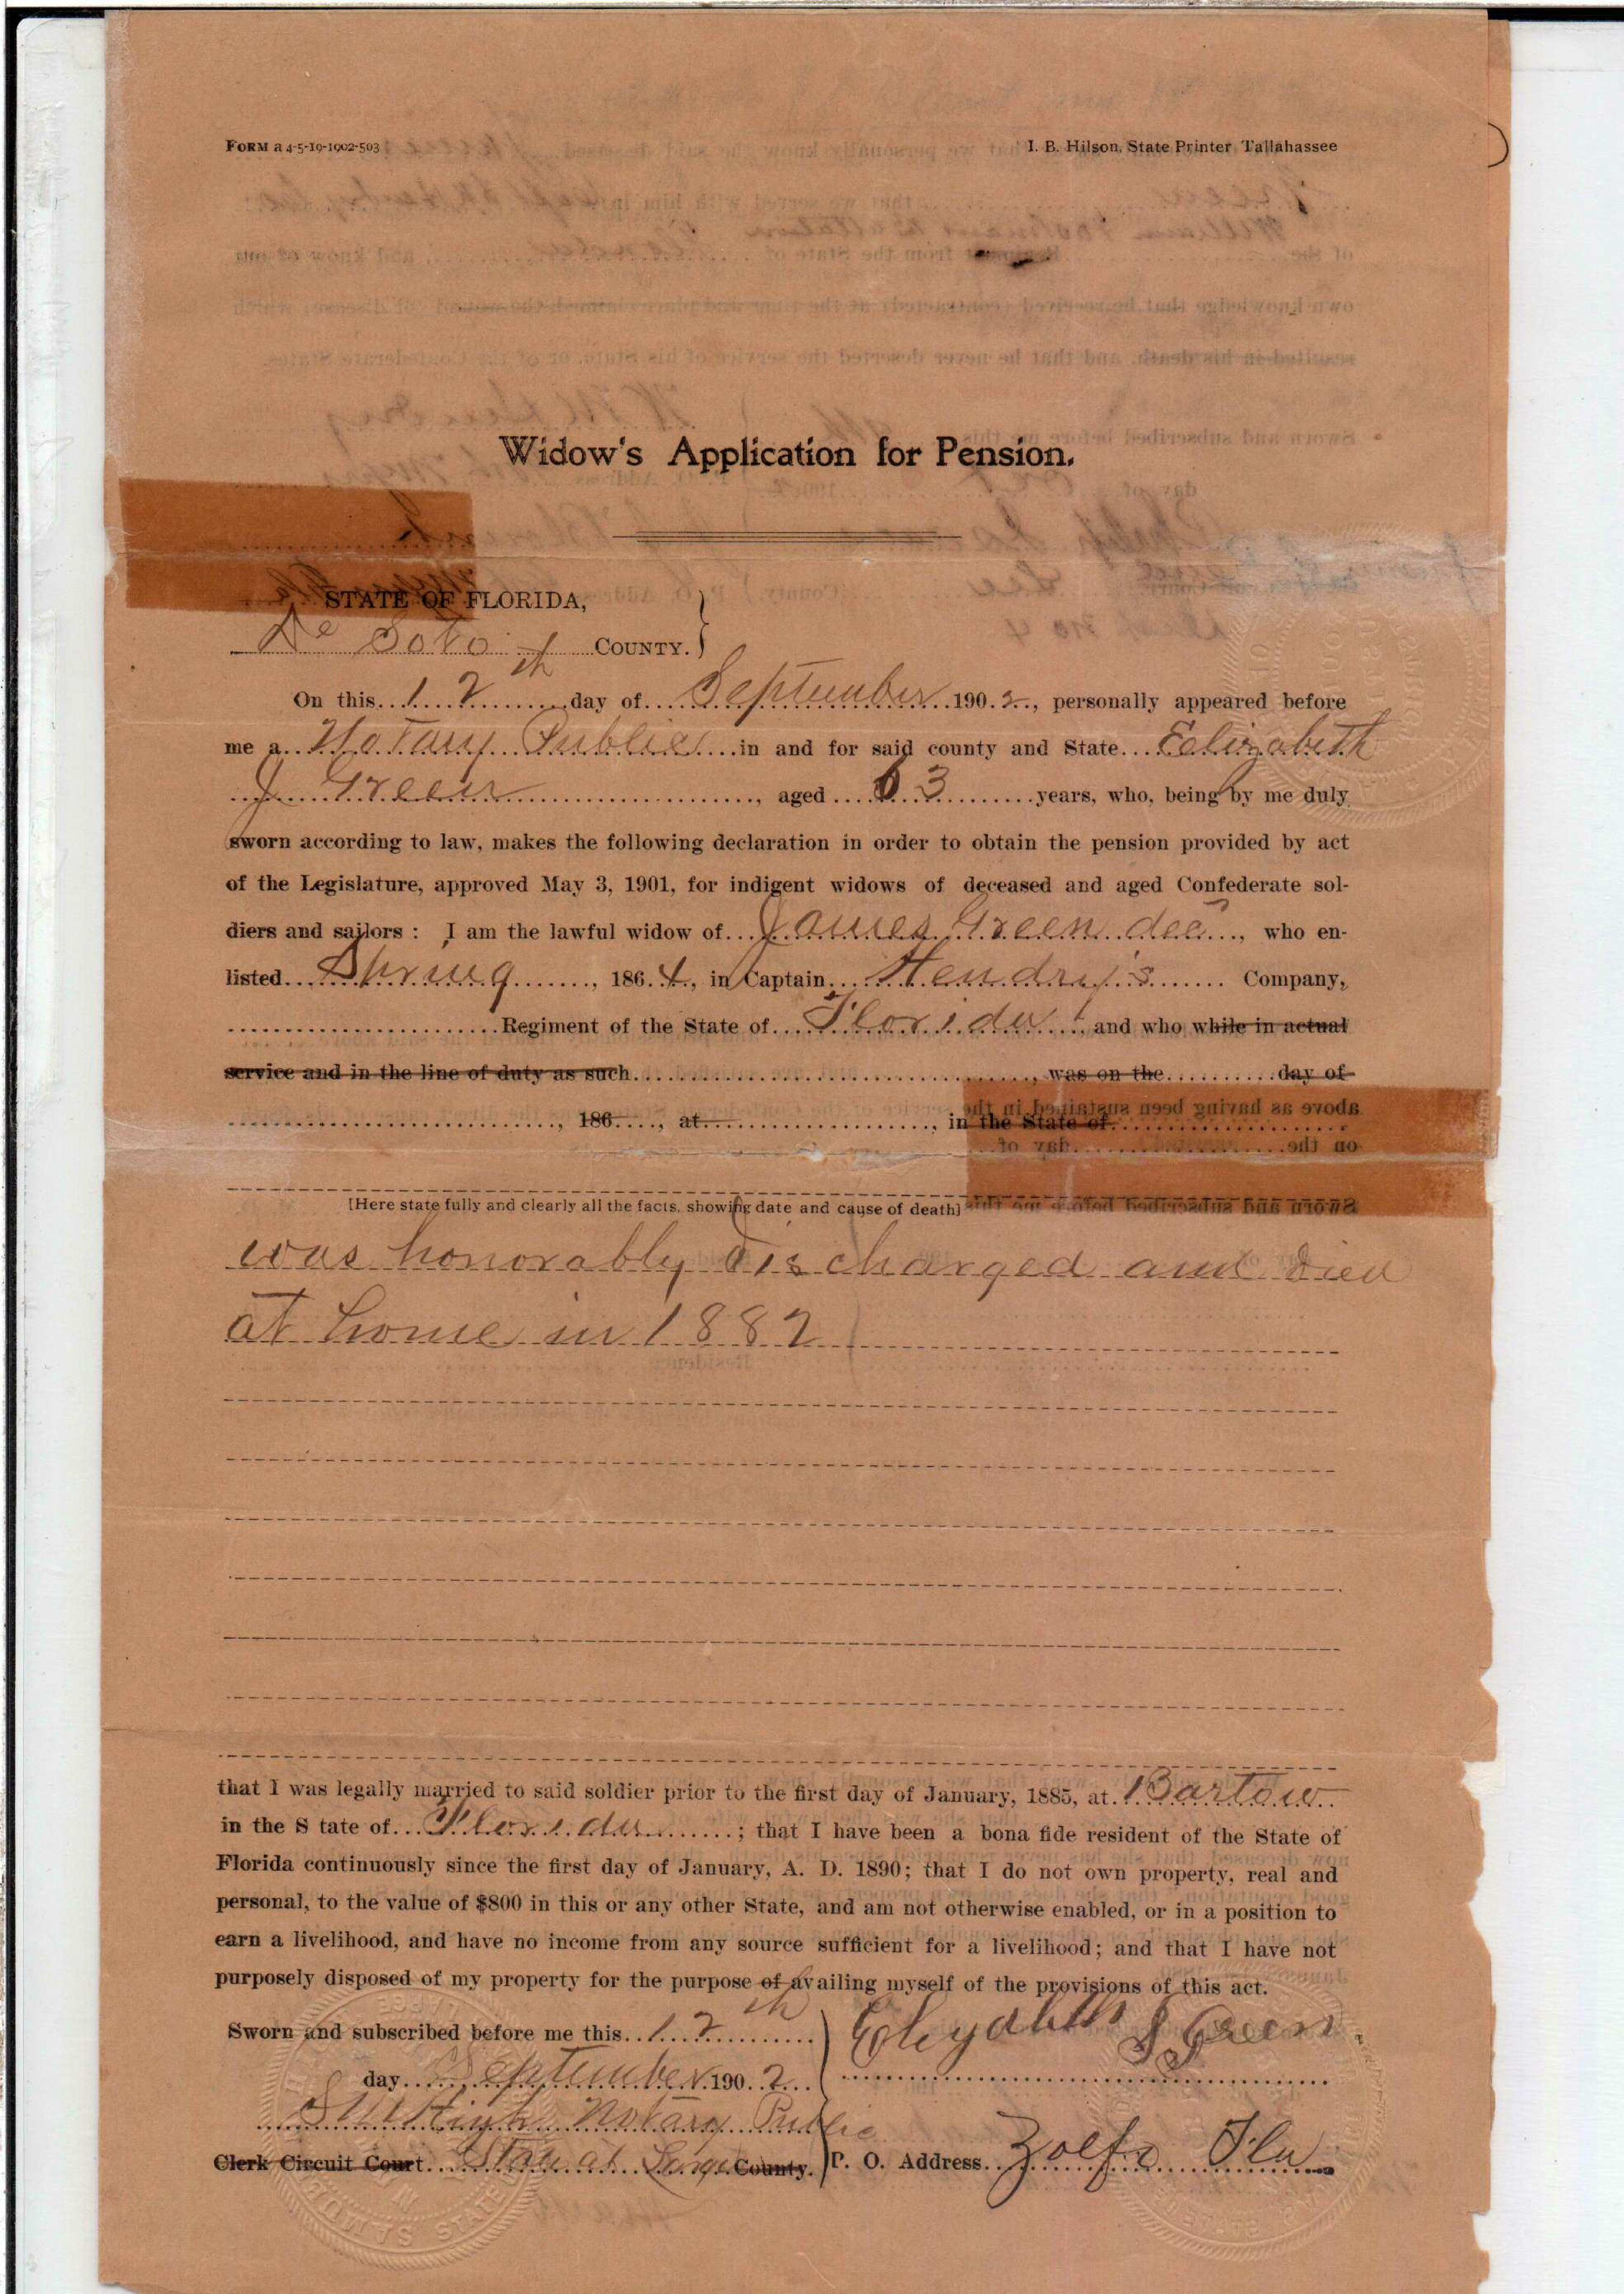 FORM a 4-5-19-1902-503 I. B. Hilson, State Printer Tallahassee
Widow's Application for Pension.
STATE OF FLORIDA,
De Soto COUNTY.
On this 12th day of September 1902, personally appeared before
me a Notary Public in and for said county and State Elizabeth
J Green, aged 63 years, who, being by me duly
sworn according to law, makes the following declaration in order to obtain the pension provided by act
of the Legislature, approved May 3, 1901, for indigent widows of deceased and aged Confederate sol-
diers and sailors : I am the lawful widow of James Green dec, who en-
listed Spring, 1864, in Captain Hendry's Company,
Regiment of the State of Florida, and who while in actual
service and in the line of duty as such, was on the day of
, 186 , at , in the State of
[Here state fully and clearly all the facts, showing date and cause of death]
was honorably discharged and Died
at home in 1882
that I was legally married to said soldier prior to the first day of January, 1885, at Bartow
in the S tate of Florida; that I have been a bona fide resident of the State of
Florida continuously since the first day of January, A. D. 1890; that I do not own property, real and
personal, to the value of $800 in this or any other State, and am not otherwise enabled, or in a position to
earn a livelihood, and have no income from any source sufficient for a livelihood; and that I have not
purposely disposed of my property for the purpose of availing myself of the provisions of this act.
Sworn and subscribed before me this 12th Elizabeth J Green
day September 1902
Notary Public
Clerk Circuit Court State at Large County. P. O. Address Zolfo Fla